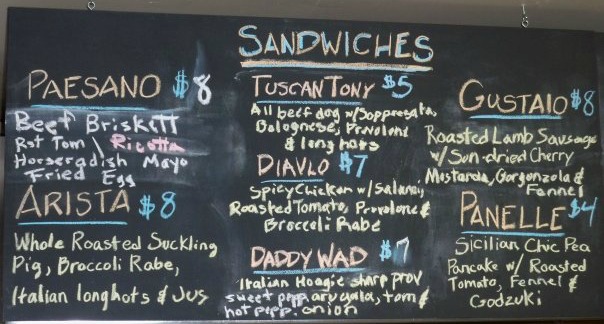 SANDWICHES
PAESANO $8
Beef Briskett
Rst Tom \ Ricotta
Horseradish Mayo
Fried Egg
ARISTA $8
Whole Roasted Suckling
Pig, Broccoli Rabe,
Italian longhots & Jus
TUSCAN TONY $5
All beef dog w/Soppresata,
Bolognese, Provolone
& long hots
DIAVLO $7
Spicy Chicken w/ Salami,
Roasted Tomato, Provolone &
Broccoli Rabe
DADDY WAD $7
Italian Hoagie sharp prov
sweet pepp. arugula, tom &
hot pepp. onion
GUSTAIO $8
Roasted Lamb Sausage
w/ Sun-dried Cherry
Mostarda, Gorgonzola &
Fennel
PANELLE $4
Sicilian Chic Pea
Pancake w/ Roasted
Tomato, Fennel &
Godzuki